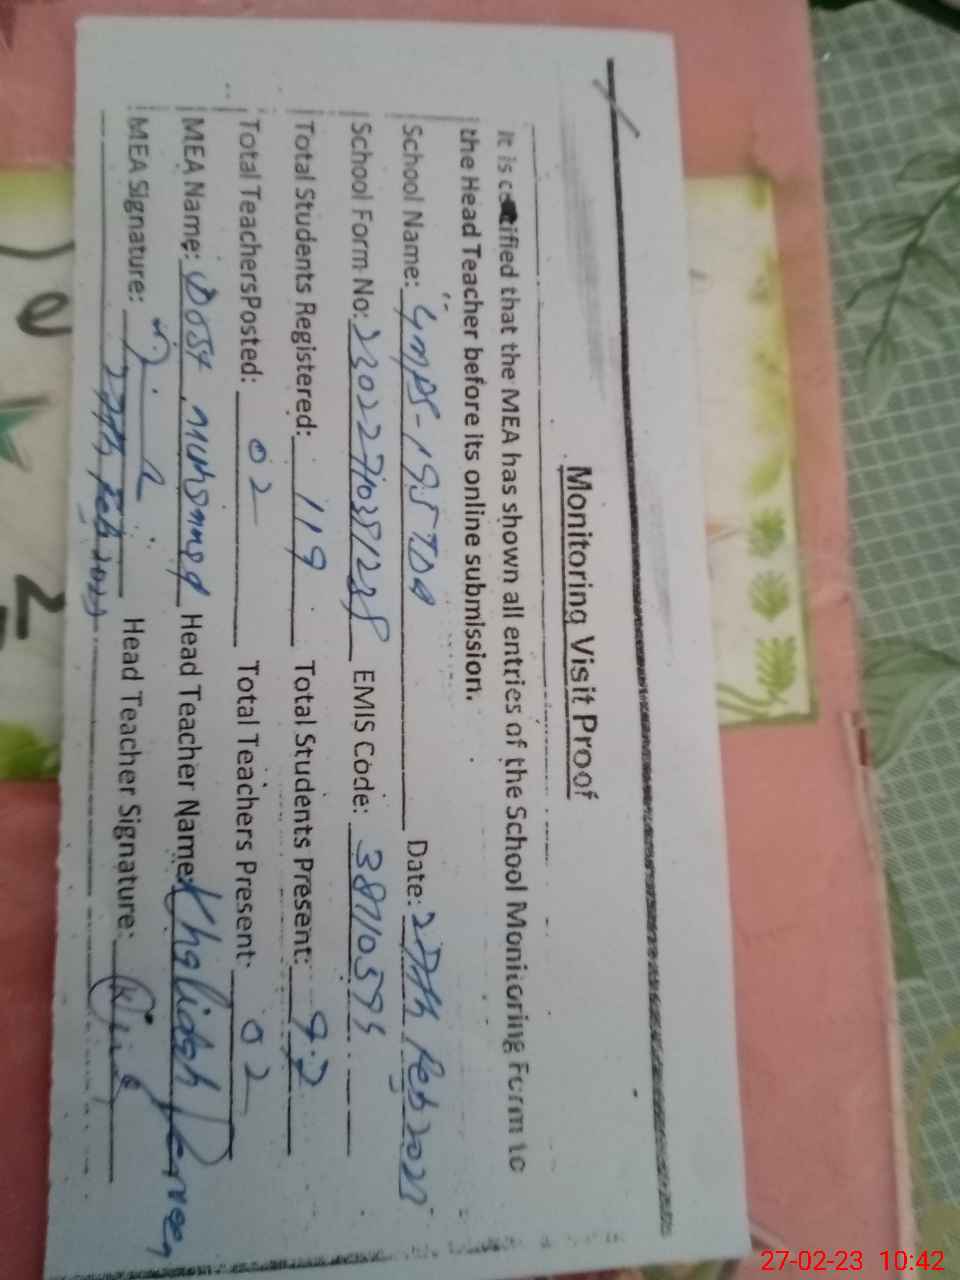 Monitoring Visit Proof
It is certified that the MEA has shown all entries of the School Monitoring Form to
the Head Teacher before its online submission.
School Name: GMPS-195 TDA Date: 27th Feb 2023
School Form No: EMIS Code:
Total Students Registered: 119 Total Students Present: 92
Total TeachersPosted: 02 Total Teachers Present: 02
MEA Name: Dost Muhammad Head Teacher Name: Khalidah Parveen
MEA Signature: Head Teacher Signature:
27th Feb 2023
27-02-23 10:42